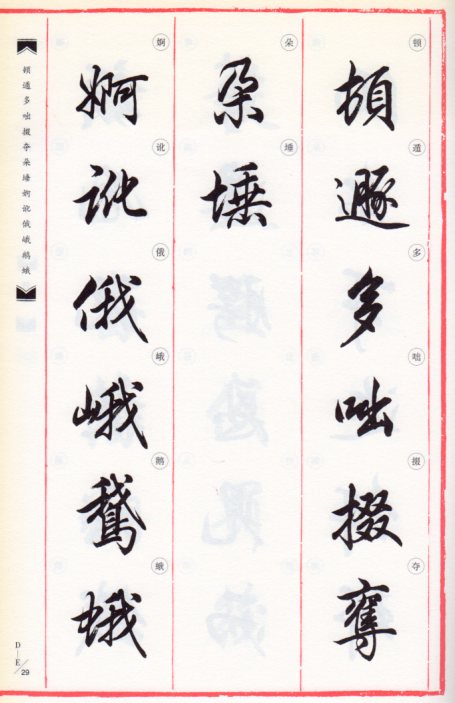 顿 遁 多 咄 掇 夺
頓 遯 多 咄 掇 奪
朵 埵
朵 埵
婀 讹 俄 峨 鹅 蛾
婀 訛 俄 峨 鵞 蛾
顿遁多咄掇夺朵埵婀讹俄峨鹅蛾
D—E/29